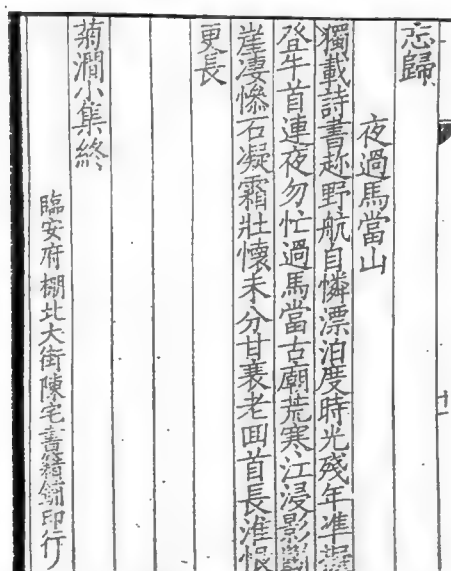 十一
忘歸
夜過馬當山
獨載詩書趂野航自憐漂泊度時光殘年準擬
登牛首連夜勿忙過馬當古廟荒寒江浸影
崖凄慘石凝霜壯懷未分甘衰老回首長淮恨
更長
菊澗小集終
臨安府棚北大街陳宅書籍鋪印行